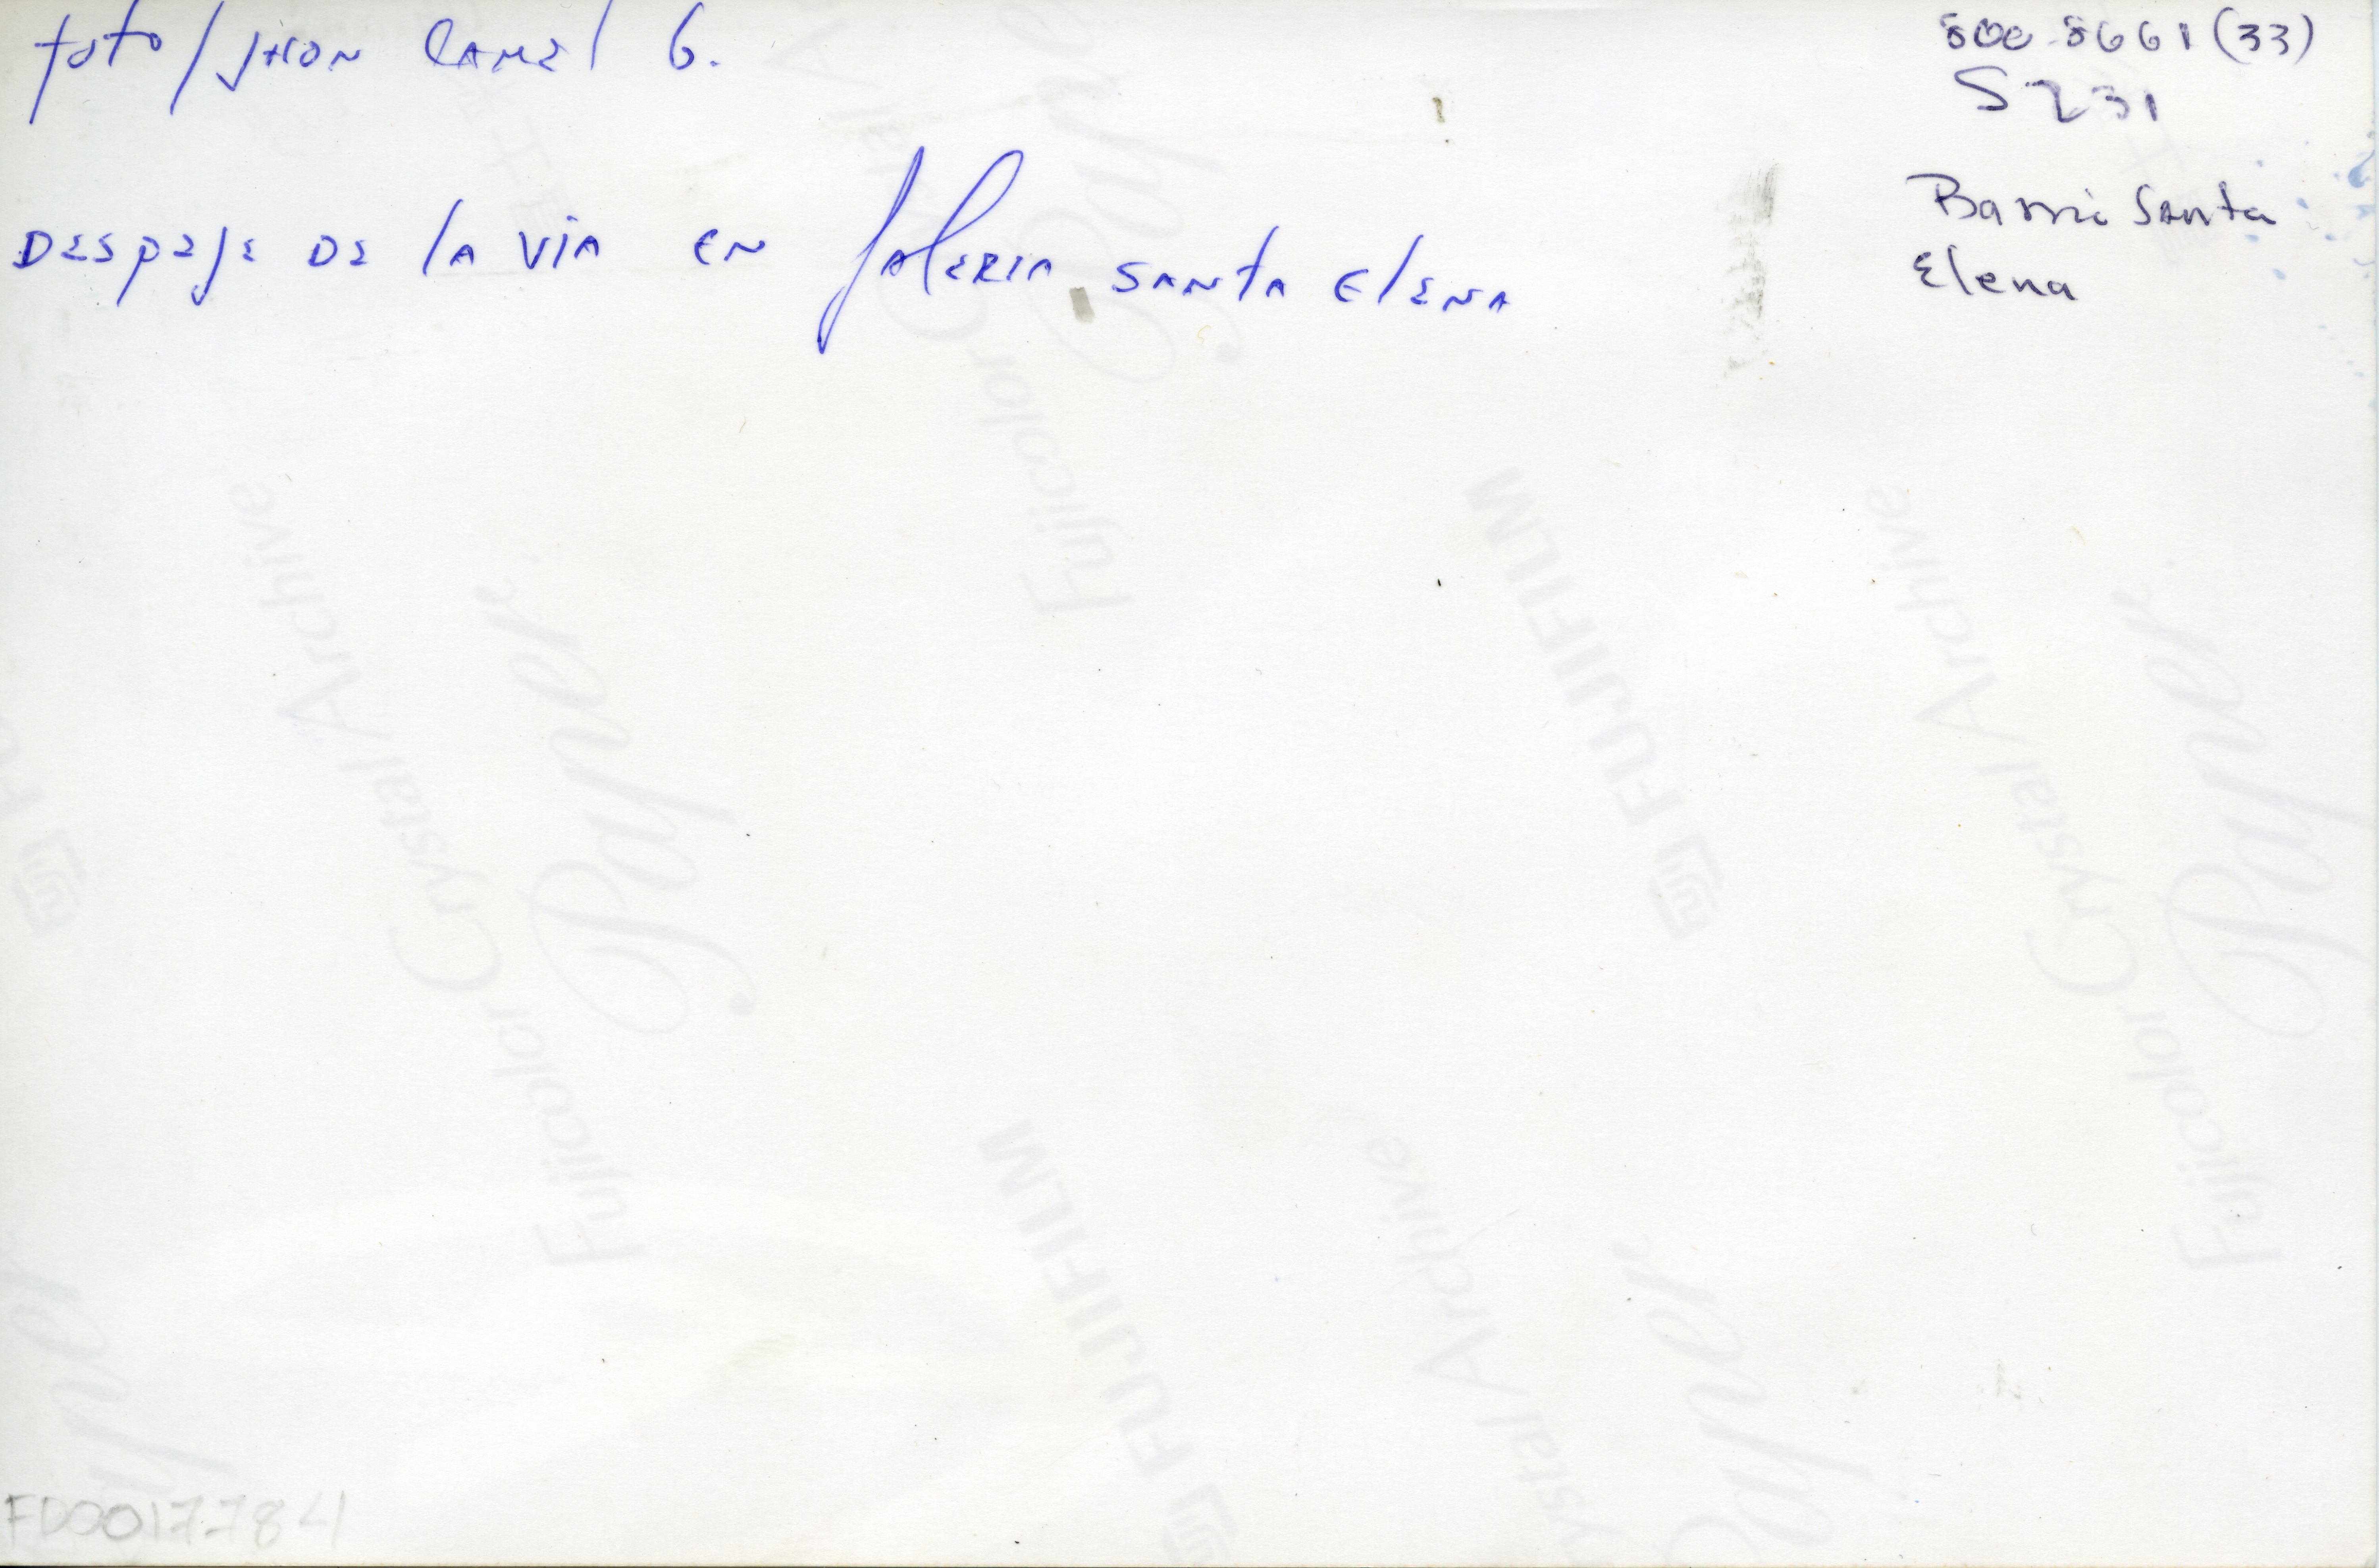 foto/JHON CAMEL G.
DESPEJE DE LA VIA EN GALERIA SANTA ELENA
800-8661 (33)
S231
Barrio Santa
Elena
Fujicolor Crystal Archive
Paper
FUJIFILM
Fujicolor Crystal Archive
Paper
Fujicolor Crystal Archive
Paper
FUJIFILM
Crystal Archive
Paper
FD0017784